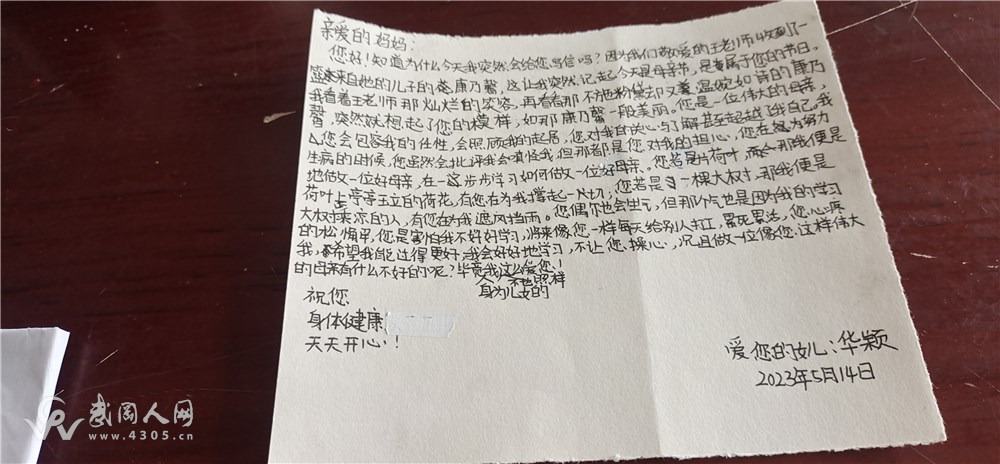 亲爱的妈妈：
您好！知道为什么今天我突然会给您写信吗？因为我们敬爱的王老师收到了一
来自她的儿子的康乃馨，这让我突然记起今天是母亲节，是专属于您的节日。
我看着王老师那灿烂的笑容，再看着那不施粉黛却又温婉如诗的康乃
馨，突然就想起了您的模样，如那康乃馨一般美丽。您是一位伟大的母亲，
您会包容我的任性，会照顾我的起居，您对我的关心与了解甚至超越了我自己。我
生病的时候，您虽然会批评我会嗔怪我，但那都是您对我的担心，您在努力
地做一位好母亲，在一步步学习如何做一位好母亲。您若是片荷叶，那我便是
荷叶上亭亭玉立的荷花，有您在为我撑起一切，您若是一棵大树，那我便是
大树乘凉的人，有您在为我遮风挡雨。您偶尔也会生气，但那小气也是因为我的学习
的松懈，您是害怕我不好好学习，将来像您一样每天给别人打工，累死累活，您心疼
我，希望我能过得更好，我会好好地学习，不让您操心，况且做一位像您这样伟大
的母亲有什么不好的呢？毕竟我这么爱您！
身为儿女的
祝您
身体健康
天天开心！
爱您的女儿：华颖
2023年5月14日
武冈人网
www.4305.cn